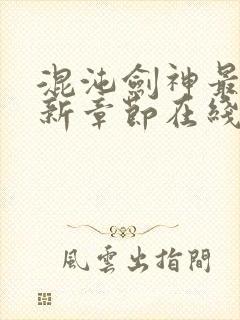 混沌劍神最
新章節在綫
風雲出指間